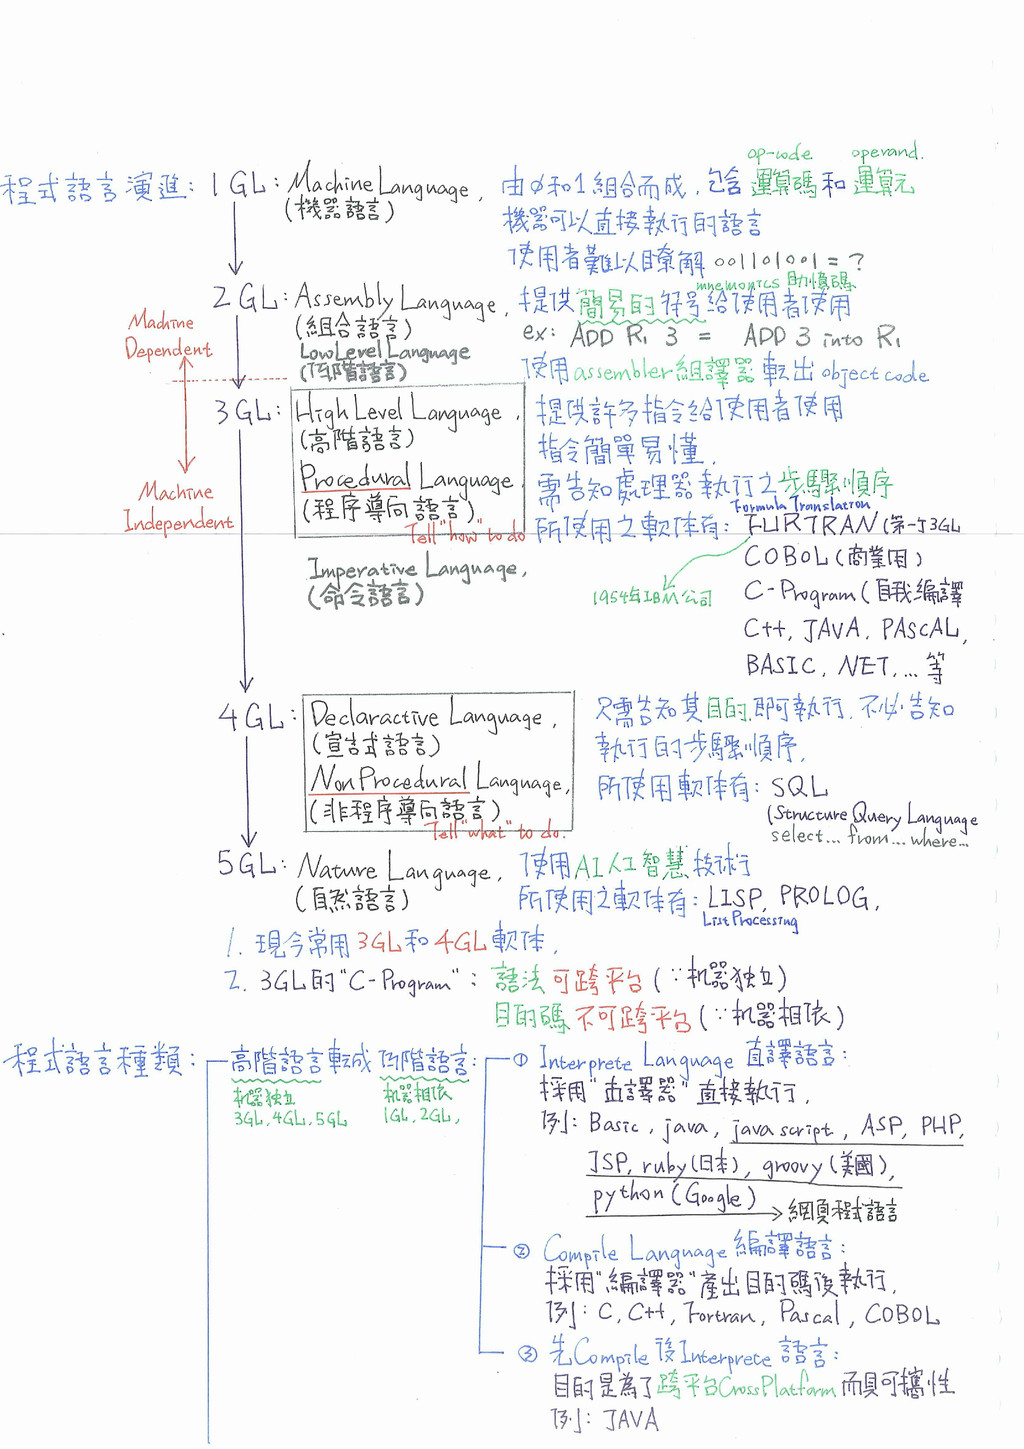 op-code operand.
程式語言演進: 1GL: Machine Language, 由0和1組合而成, 包含 運算碼和運算元
(機器語言) 機器可以直接執行的語言
使用者難以瞭解 001101001 = ?
mnemonics 助憶碼
2GL: Assembly Language, 提供簡易的符號給使用者使用
(組合語言) ex: ADD R1 3 = ADD 3 into R1
Machine Dependent
Low Level Language
(低階語言) 使用assembler組譯器 転出 object code
3GL: High Level Language, 提供許多指令給使用者使用
(高階語言) 指令簡單易懂,
Procedural Language, 需告知處理器執行之步驟順序
Machine Independent
(程序導向語言)
Tell "how" to do
Formula Translation
所使用之軟体有: FORTRAN (第一个3GL
Imperative Language, COBOL (商業用)
(命令語言) 1954年IBM公司 C-Program (自我編譯
C++, JAVA, PASCAL,
BASIC, .NET, ... 等
4GL: Declaractive Language, 只需告知其目的, 即可執行, 不必告知
(宣告式語言) 執行的步驟順序,
NonProcedural Language, 所使用軟体有: SQL
(非程序導向語言) (Structure Query Language
Tell "what" to do. select... from... where...
5GL: Nature Language, 使用AI人工智慧技術
(自然語言) 所使用之軟体有: LISP, PROLOG,
List Processing
1. 現今常用3GL和4GL軟体,
2. 3GL的"C-Program": 語法可跨平台 (∵机器独立)
目的碼 不可跨平台 (∵机器相依)
程式語言種類: 高階語言転成 低階語言: ① Interprete Language 直譯語言:
机器独立 机器相依 採用"直譯器"直接執行,
3GL, 4GL, 5GL 1GL, 2GL, 例: Basic, java, java script, ASP, PHP,
JSP, ruby(日本), groovy(美國),
python(Google) → 網頁程式語言
② Compile Language 編譯語言:
採用"編譯器"產出目的碼後執行,
例: C, C++, Fortran, Pascal, COBOL
③ 先Compile後Interprete 語言:
目的是為了跨平台CrossPlatform而具可攜性
例: JAVA